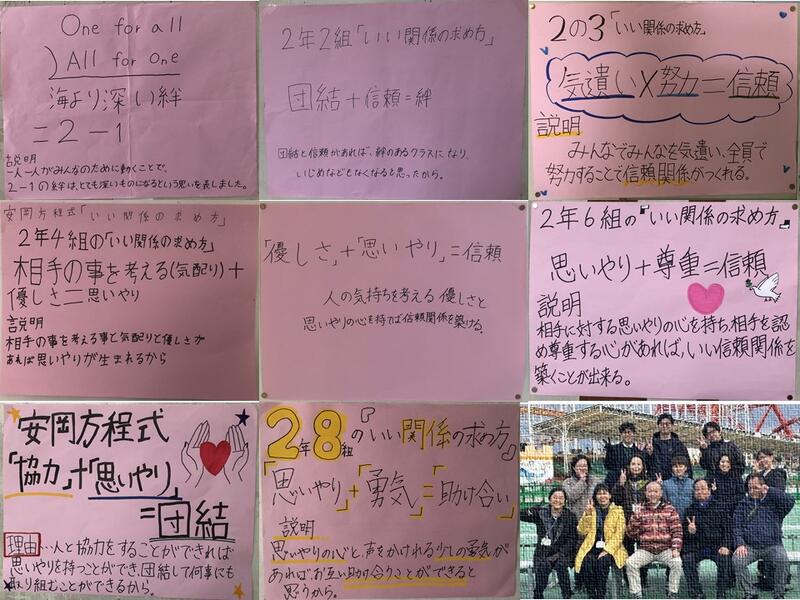 One for all
All for One
海より深い絆
=2-1
説明
一人一人がみんなのために動くことで、
2-1の絆は、とても深いものになるという思いを表しました。
2年2組「いい関係の求め方」
団結+信頼=絆
団結と信頼があれば、絆のあるクラスになり、
いじめなどもなくなると思ったから。
2の3「いい関係の求め方」
気遣い×努力=信頼
説明
みんなでみんなを気遣い、全員で
努力することで信頼関係がつくれる。
安岡方程式「いい関係の求め方」
2年4組の「いい関係の求め方」
相手の事を考える(気配り)+
優しさ=思いやり
説明
相手の事を考える事と気配りと優しさが
あれば思いやりが生まれるから
「優しさ」+「思いやり」=信頼
人の気持ちを考える優しさと
思いやりの心を持てば信頼関係を築ける。
2年6組の『いい関係の求め方』
思いやり+尊重=信頼
説明
相手に対する思いやりの心を持ち、相手を認
め尊重する心があれば、いい信頼関係を
築くことが出来る。
安岡方程式
「協力」+「思いやり」
=団結
理由…人と協力をすることができれば
思いやりを持つことができ、団結して何事にも
取り組むことができるから。
2年8組の『いい関係の求め方』
「思いやり」+「勇気」=「助け合い」
説明
思いやりの心と、声をかけれる少しの勇気が
あれば、お互い助け合うことができると
思うから。